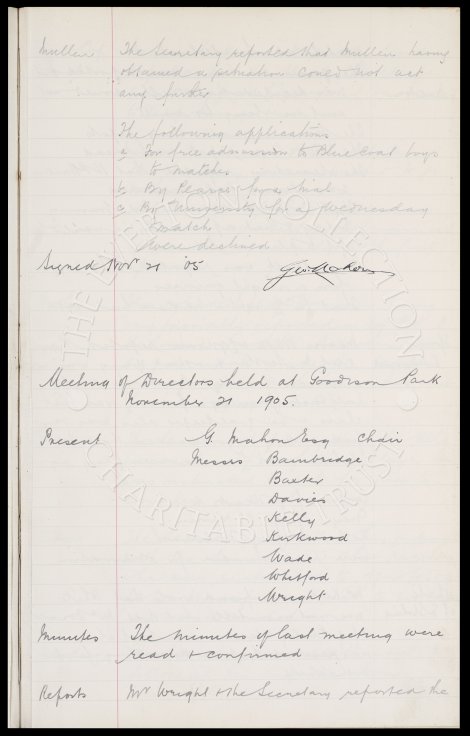 Mullen The Secretary reported that Mullen having
obtained a situation could not act
any further
The following applications
a For free admission to Blue Coat boys
to matches
b By Pearce for a trial
c By University for a Wednesday
match
were declined
Signed Novr 21 '05 Geo. Mahon
Meeting of Directors held at Goodison Park
November 21 1905.
Present G. Mahon Esq Chair
Messrs Bainbridge
Baxter
Davies
Kelly
Kirkwood
Wade
Whitford
Wright
Minutes The minutes of last meeting were
read & confirmed
Reports Mr Wright & the Secretary reported the
THE EVERTON COLLECTION
CHARITABLE TRUST